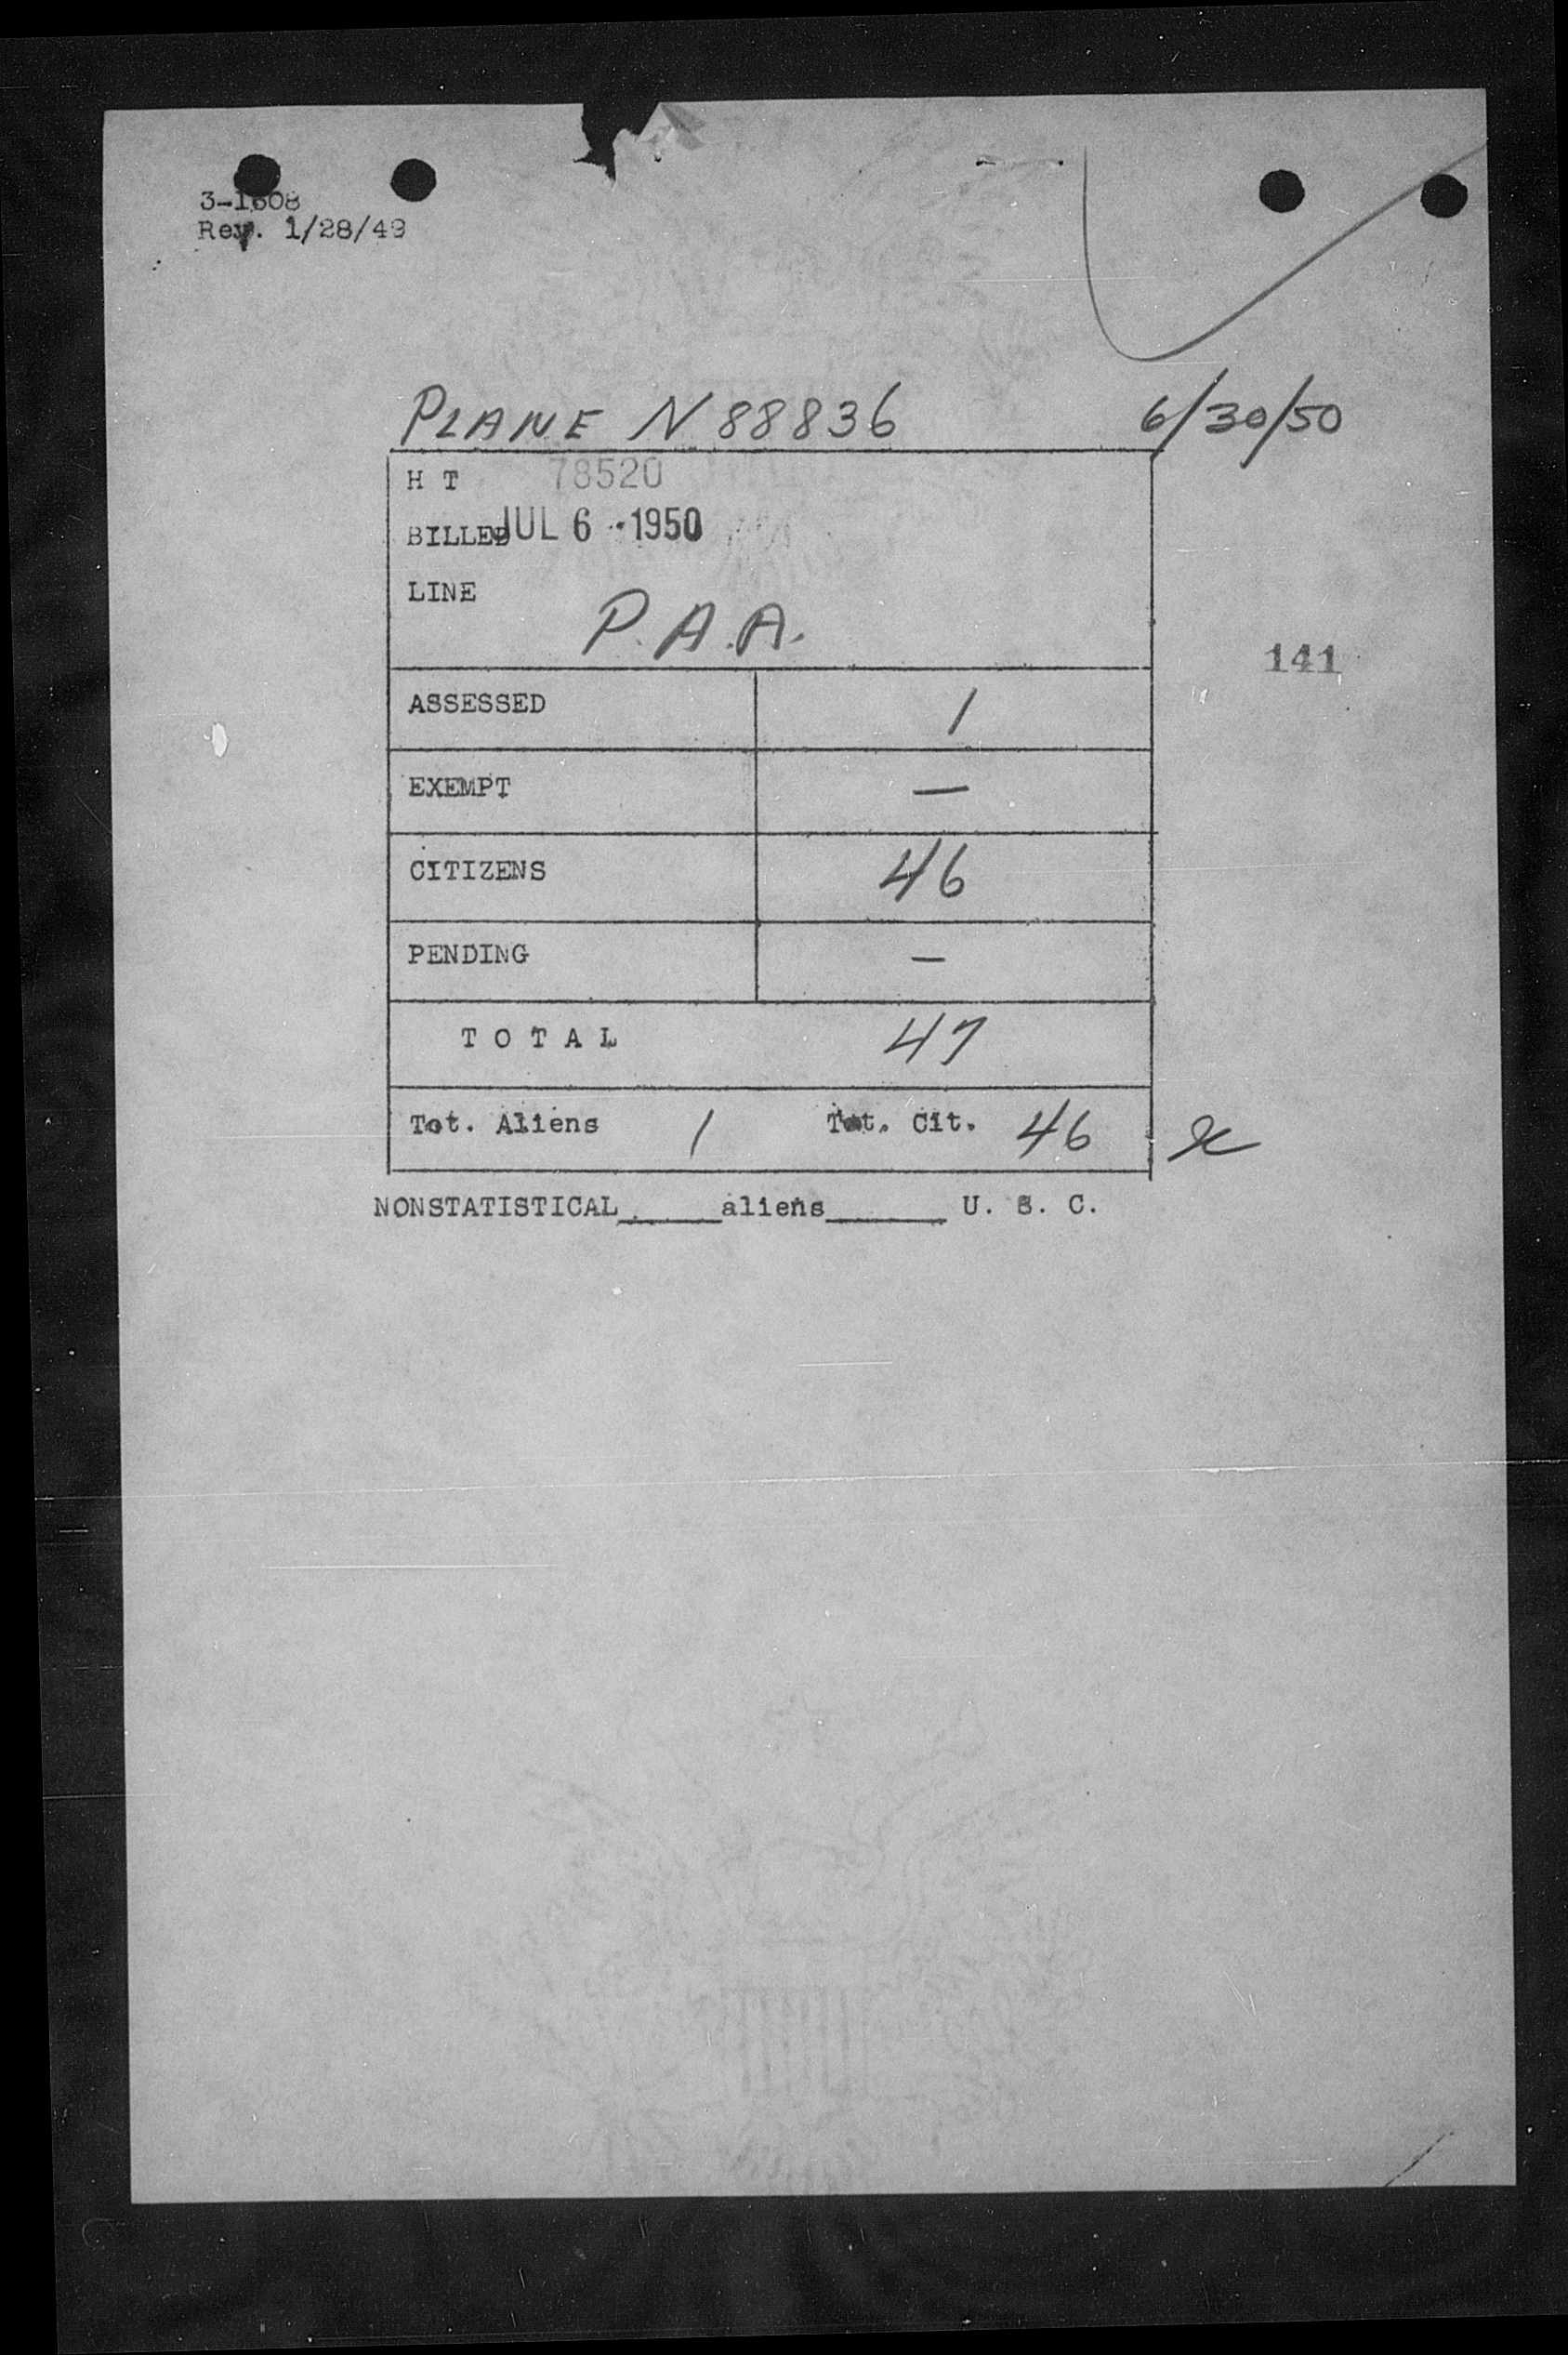 3-1608
Rev. 1/28/49
PLANE N88836 6/30/50
H T 78520
BILLED JUL 6 - 1950
LINE
P.A.A.
141
ASSESSED 1
EXEMPT —
CITIZENS 46
PENDING —
T O T A L 47
Tot. Aliens 1 Tot. Cit. 46
NONSTATISTICAL_____aliens______ U. S. C.